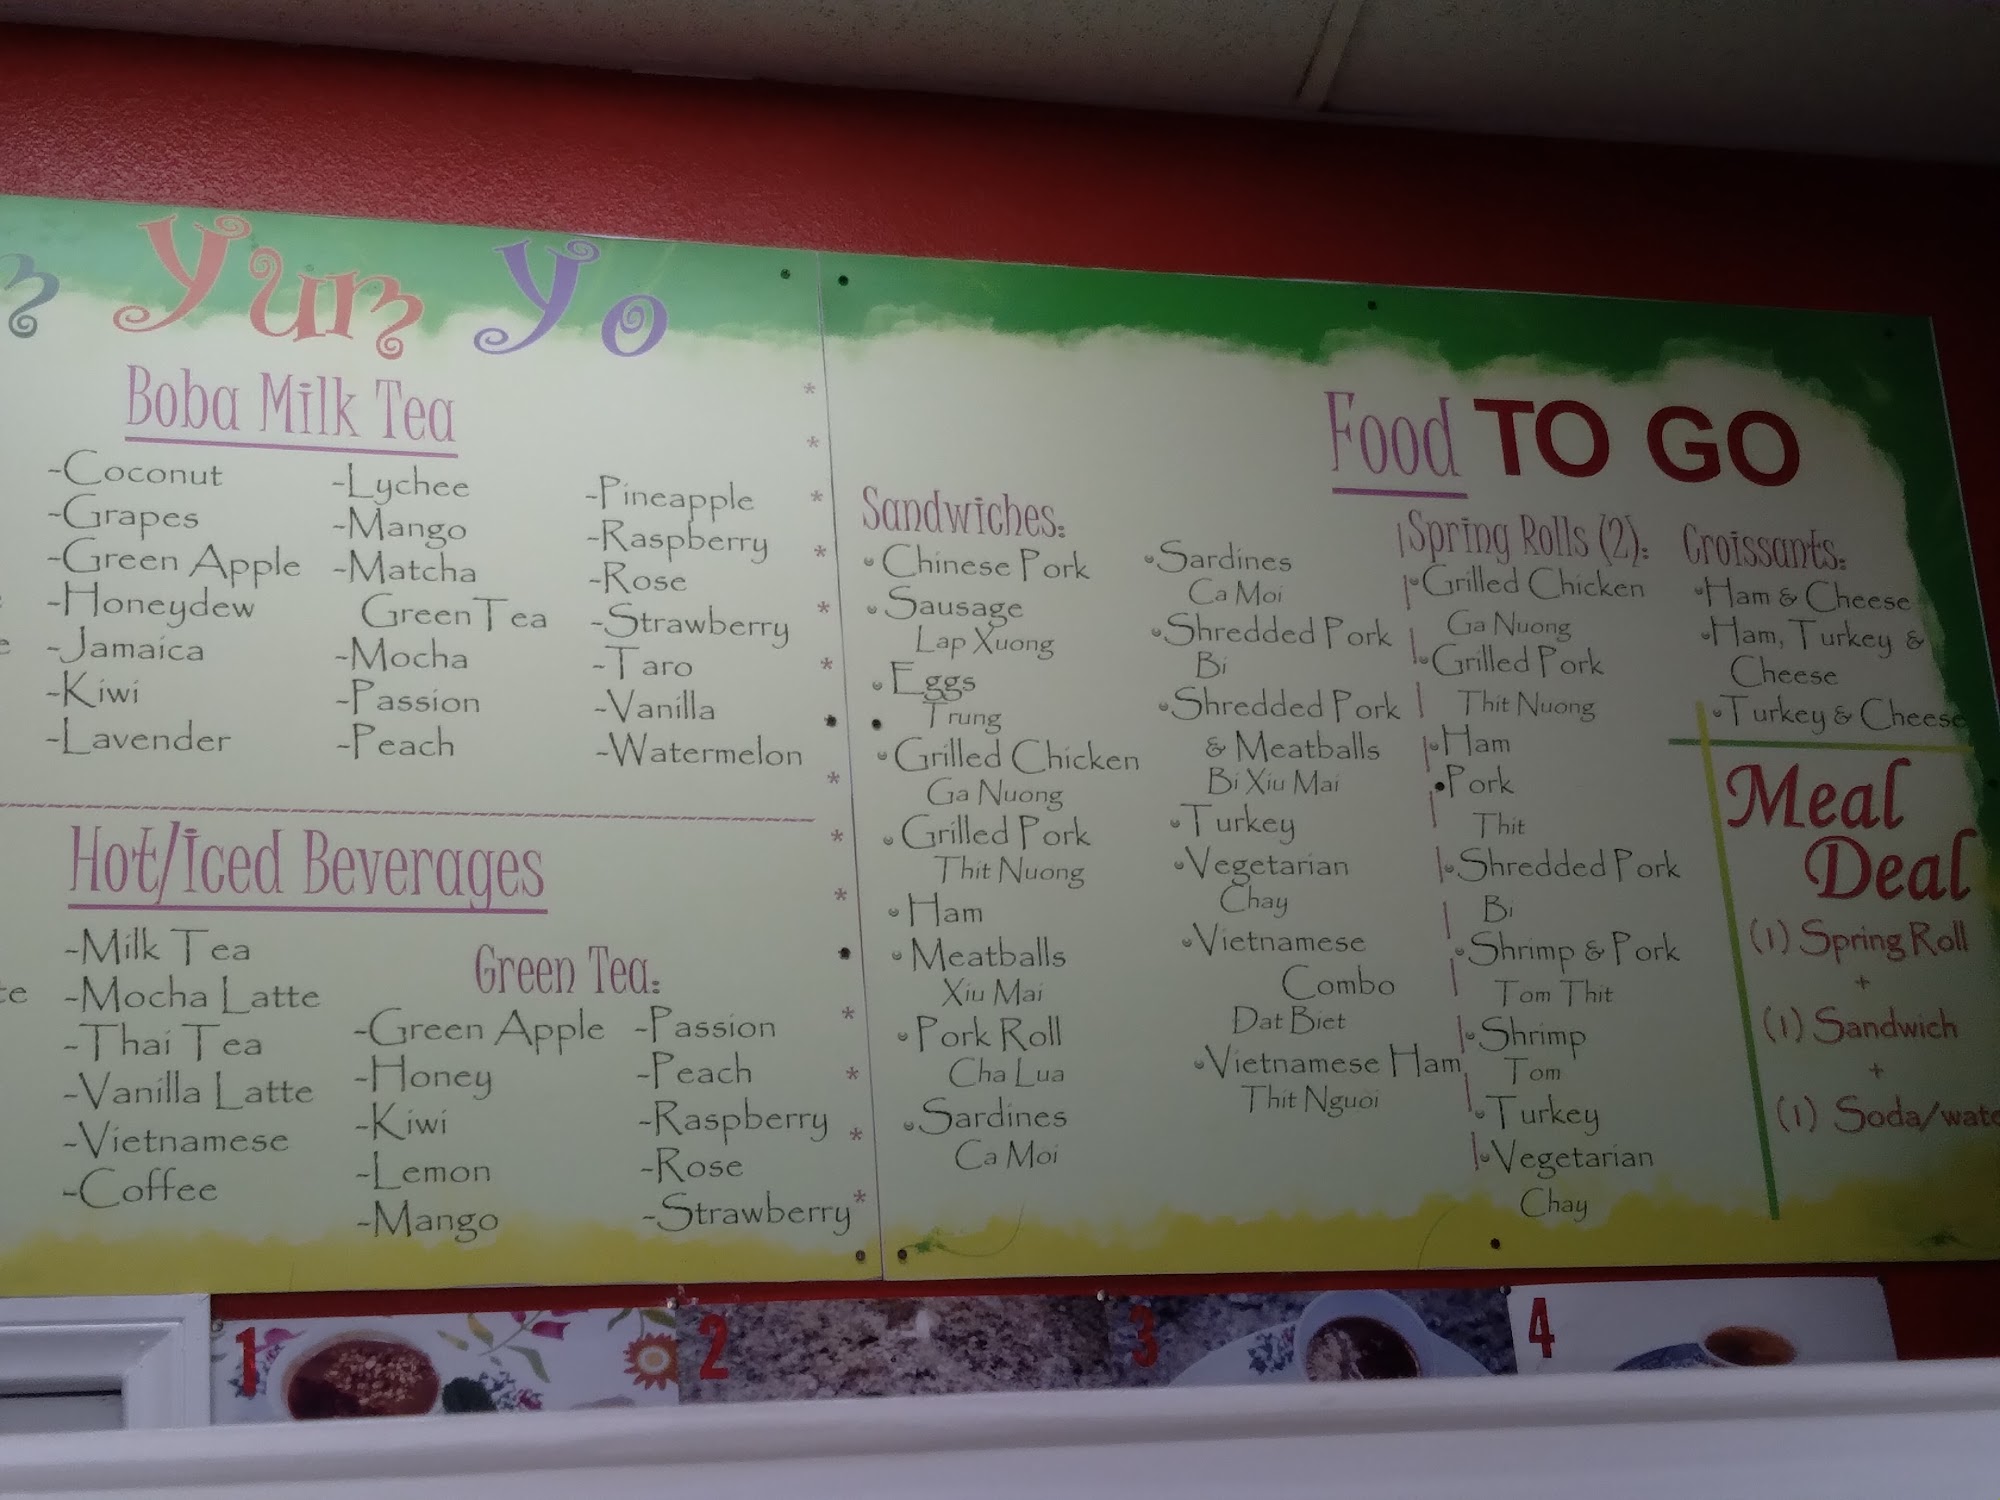 Yum Yo
Boba Milk Tea
-Coconut
-Grapes
-Green Apple
-Honeydew
-Jamaica
-Kiwi
-Lavender
-Lychee
-Mango
-Matcha
Green Tea
-Mocha
-Passion
-Peach
-Pineapple
-Raspberry
-Rose
-Strawberry
-Taro
-Vanilla
-Watermelon
Hot/Iced Beverages
-Milk Tea
-Mocha Latte
-Thai Tea
-Vanilla Latte
-Vietnamese
-Coffee
Green Tea:
-Green Apple
-Honey
-Kiwi
-Lemon
-Mango
-Passion
-Peach
-Raspberry
-Rose
-Strawberry
Food TO GO
Sandwiches:
Chinese Pork
Sausage
Lap Xuong
Eggs
Trung
Grilled Chicken
Ga Nuong
Grilled Pork
Thit Nuong
Ham
Meatballs
Xiu Mai
Pork Roll
Cha Lua
Sardines
Ca Moi
Sardines
Ca Moi
Shredded Pork
Bi
Shredded Pork
& Meatballs
Bi Xiu Mai
Turkey
Vegetarian
Chay
Vietnamese
Combo
Dat Biet
Vietnamese Ham
Thit Nguoi
Spring Rolls (2):
Grilled Chicken
Ga Nuong
Grilled Pork
Thit Nuong
Ham
Pork
Thit
Shredded Pork
Bi
Shrimp & Pork
Tom Thit
Shrimp
Tom
Turkey
Vegetarian
Chay
Croissants:
Ham & Cheese
Ham, Turkey &
Cheese
Turkey & Cheese
Meal
Deal
(1) Spring Roll
+
(1) Sandwich
+
(1) Soda/wate
1
2
3
4